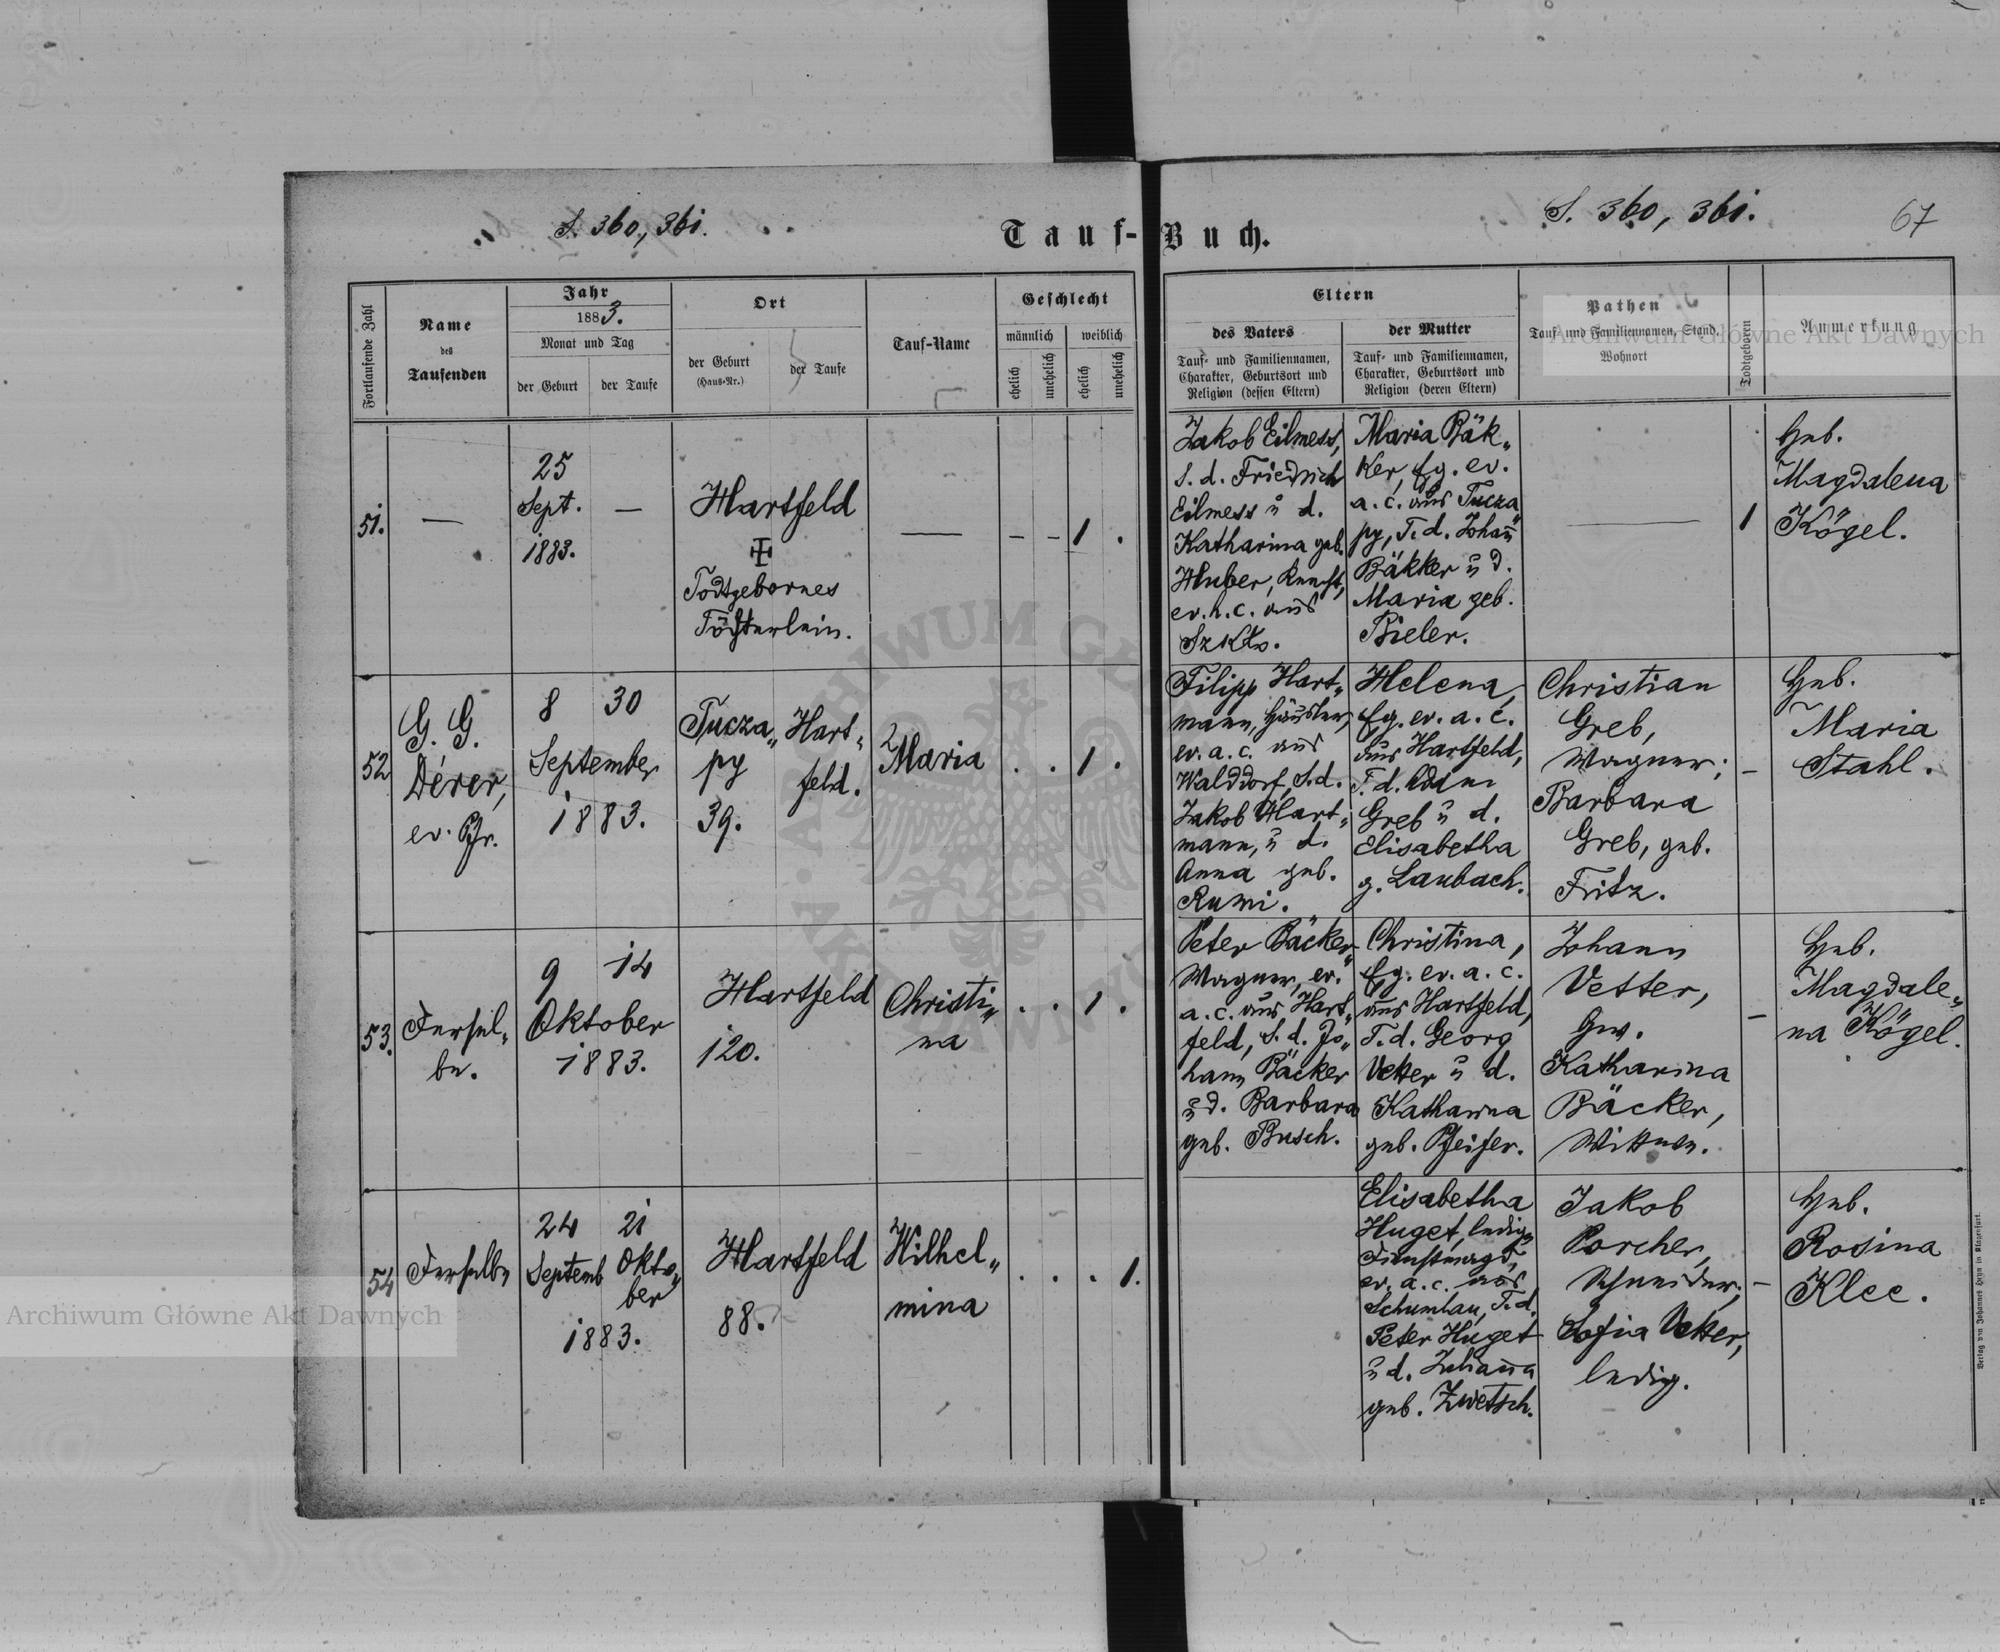 S. 360, 361.
S. 360, 361.
67
Tauf-Buch.
Fortlaufende Zahl
Name
des
Taufenden
Jahr
1883.
Monat und Tag
der Geburt
der Taufe
Ort
der Geburt
(Haus-Nr.)
der Taufe
Tauf-Name
Geschlecht
männlich
weiblich
ehelich
unehelich
ehelich
unehelich
Eltern
des Vaters
Tauf- und Familiennamen,
Charakter, Geburtsort und
Religion (dessen Eltern)
der Mutter
Tauf- und Familiennamen,
Charakter, Geburtsort und
Religion (deren Eltern)
Pathen
Tauf- und Familiennamen, Stand,
Wohnort
Todtgeboren
Anmerkung
51.
—
25
Sept.
1883.
—
Hartfeld
Todtgebornes
Töchterlein.
—
– – 1 .
Jakob Eilmess,
S. d. Friedrich
Eilmess u d.
Katharina geb.
Huber, Knecht,
ev. h. c. aus
Szkło.
Maria Bäk„
ker, Eg. ev.
a. c. aus Tucza„
py, T. d. Johañ
Bäkker u d.
Maria geb.
Bieler.
—
1
Heb.
Magdalena
Kögel.
52
G. G.
Dérer,
ev. Pfr.
8 30
September
1883.
Tucza„
py
39.
Hart„
feld.
Maria
. . 1 .
Filipp Hart„
mann, Häusler,
ev. a. c. aus
Walddorf, S. d.
Jakob Hart„
mann, u d.
Anna geb.
Rumi.
Helena,
Eg. ev. a. c.
aus Hartfeld,
T. d. Adam
Greb u d.
Elisabetha
g. Laubach.
Christian
Greb,
Wagner;
Barbara
Greb, geb.
Fritz.
–
Heb.
Maria
Stahl.
53.
Dersel„
be.
9 14
Oktober
1883.
Hartfeld
120.
Christi„
na
. . 1 .
Peter Bäcker„
Wagner, ev.
a. c. aus Hart„
feld, S. d. Jo„
hann Bäcker
u d. Barbara
geb. Busch.
Christina,
Eg. ev. a. c.
aus Hartfeld,
T. d. Georg
Vetter u d.
Katharina
geb. Pfeifer.
Johann
Vetter,
Gw.
Katharina
Bäcker,
Wittwe.
–
Heb.
Magdale„
na Kögel.
54
Derselbe
24
Septemb
21
Okto„
ber
1883.
Hartfeld
88.
Wilhel„
mina
. . . 1.
Elisabetha
Huget, ledige
Dienstmagd,
ev. a. c. aus
Schumlau, T. d.
Peter Huget
u d. Juliaña
geb. Zwetsch.
Jakob
Porcher,
Schneider;
Sofia Vetter,
ledig.
–
Heb.
Rosina
Klee.
Verlag von Johannes Heyn in Klagenfurt.
Archiwum Główne Akt Dawnych
Archiwum Główne Akt Dawnych